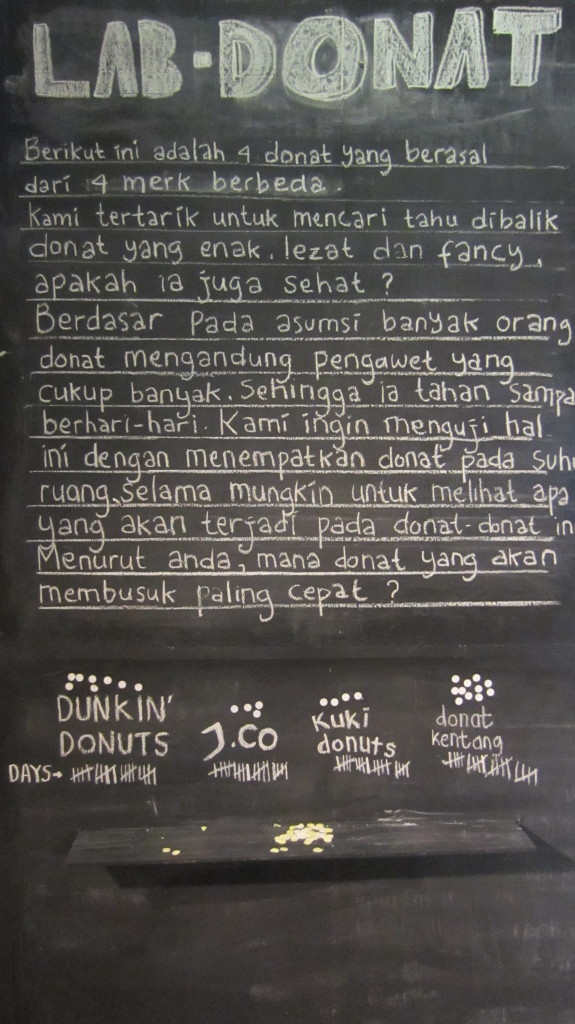 LAB-DONAT
Berikut ini adalah 4 donat yang berasal
dari 4 merk berbeda.
Kami tertarik untuk mencari tahu dibalik
donat yang enak, lezat dan fancy,
apakah ia juga sehat ?
Berdasar pada asumsi banyak orang
donat mengandung pengawet yang
cukup banyak. Sehingga ia tahan sampa
berhari-hari. Kami ingin menguji hal
ini dengan menempatkan donat pada suhu
ruang, selama mungkin untuk melihat apa
yang akan terjadi pada donat-donat in
Menurut anda, mana donat yang akan
membusuk paling cepat ?
DUNKIN' DONUTS
J.CO
Kuki donuts
donat kentang
DAYS→